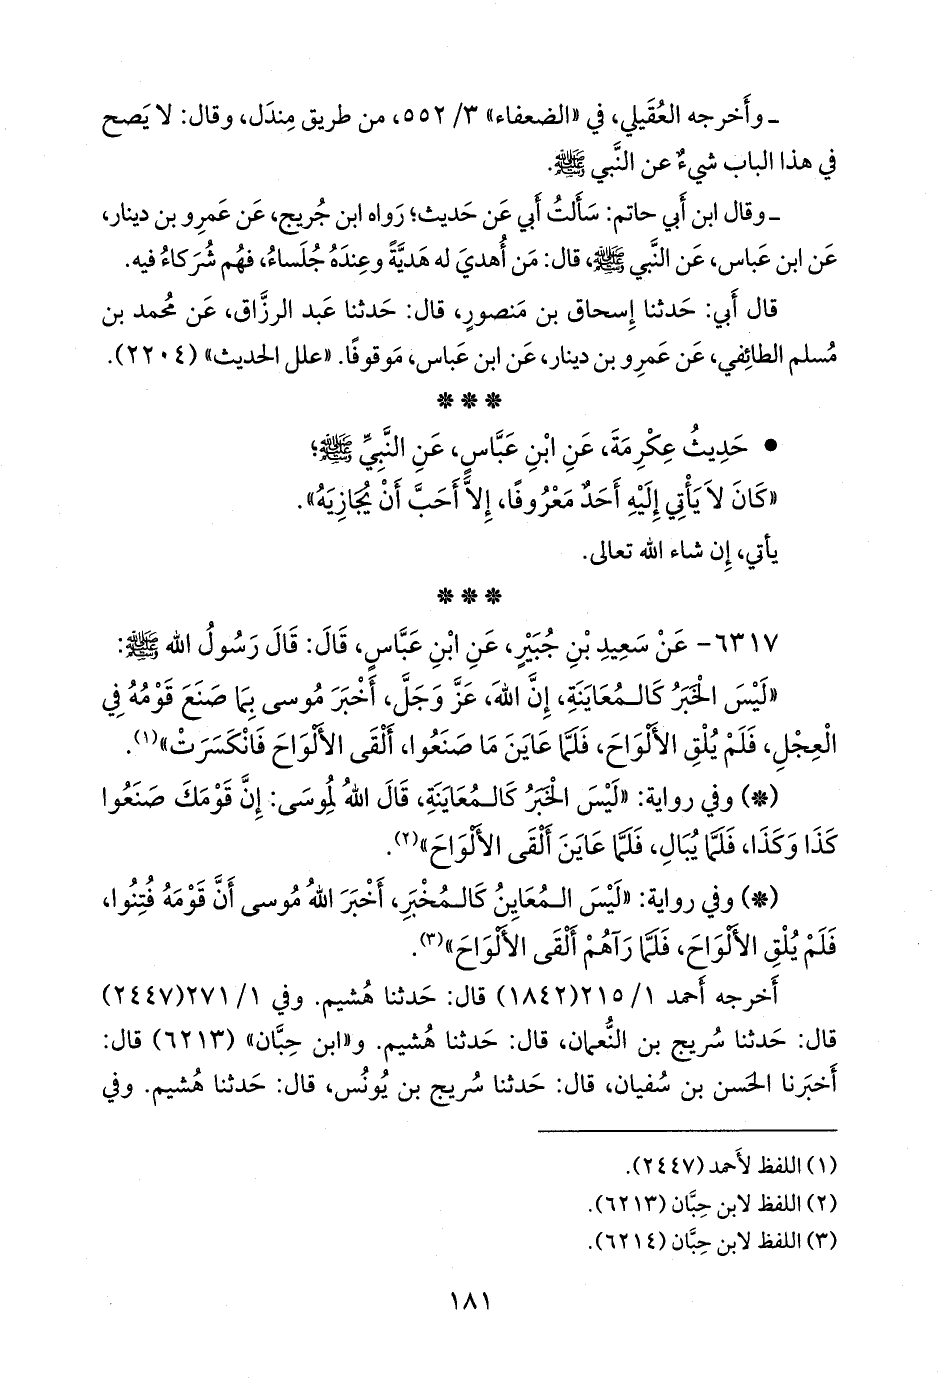 ـ وأَخرجه العُقَيلي، في «الضعفاء» ٣/ ٥٥٢، من طريق مِندَل، وقال: لا يَصح
في هذا الباب شيءٌ عن النَّبي ﷺ.
ـ وقال ابن أَبي حاتم: سَأَلتُ أَبي عَن حَديث؛ رَواه ابن جُريج، عَن عَمرو بن دينار،
عَن ابن عَباس، عَن النَّبي ﷺ، قال: مَن أُهديَ له هَديَّةً وعِندَهُ جُلَساءُ، فهُم شُرَكاءُ فيه.
قال أَبي: حَدثنا إِسحاق بن مَنصورٍ، قال: حَدثنا عَبد الرزَّاق، عَن مُحمد بن
مُسلم الطائِفي، عَن عَمرو بن دينار، عَن ابن عَباس، مَوقوفًا. «علل الحديث» (٢٢٠٤).
* * *
• حَدِيثُ عِكْرِمَةَ، عَنِ ابْنِ عَبَّاسٍ، عَنِ النَّبِيِّ ﷺ؛
«كَانَ لاَ يَأْتِي إِلَيْهِ أَحَدٌ مَعْرُوفًا، إِلاَّ أَحَبَّ أَنْ يُجَازِيَهُ».
يأتي، إِن شاء الله تعالى.
* * *
٦٣١٧- عَنْ سَعِيدِ بْنِ جُبَيْرٍ، عَنِ ابْنِ عَبَّاسٍ، قَالَ: قَالَ رَسُولُ الله ﷺ:
«لَيْسَ الْخَبَرُ كَالـمُعَايَنَةِ، إِنَّ اللهَ، عَزَّ وَجَلَّ، أَخْبَرَ مُوسى بِمَا صَنَعَ قَوْمُهُ فِي
الْعِجْلِ، فَلَمْ يُلْقِ الأَلْوَاحَ، فَلَمَّا عَايَنَ مَا صَنَعُوا، أَلْقَى الأَلْوَاحَ فَانْكَسَرَتْ»(١).
(*) وفي رواية: «لَيْسَ الْخَبَرُ كَالـمُعَايَنَةِ، قَالَ اللهُ لِمُوسَى: إِنَّ قَوْمَكَ صَنَعُوا
كَذَا وَكَذَا، فَلَمَّا يُبَالِ، فَلَمَّا عَايَنَ أَلْقَى الأَلْوَاحَ»(٢).
(*) وفي رواية: «لَيْسَ الـمُعَايِنُ كَالـمُخْبَرِ، أَخْبَرَ اللهُ مُوسى أَنَّ قَوْمَهُ فُتِنُوا،
فَلَمْ يُلْقِ الأَلْوَاحَ، فَلَمَّا رَآهُمْ أَلْقَى الأَلْوَاحَ»(٣).
أَخرجه أَحمد ١/ ٢١٥(١٨٤٢) قال: حَدثنا هُشيم. وفي ١/ ٢٧١(٢٤٤٧)
قال: حَدثنا سُريج بن النُّعمان، قال: حَدثنا هُشيم. و«ابن حِبَّان» (٦٢١٣) قال:
أَخبَرنا الحَسن بن سُفيان، قال: حَدثنا سُريج بن يُونُس، قال: حَدثنا هُشيم. وفي
(١) اللفظ لأَحمد (٢٤٤٧).
(٢) اللفظ لابن حِبَّان (٦٢١٣).
(٣) اللفظ لابن حِبَّان (٦٢١٤).
١٨١